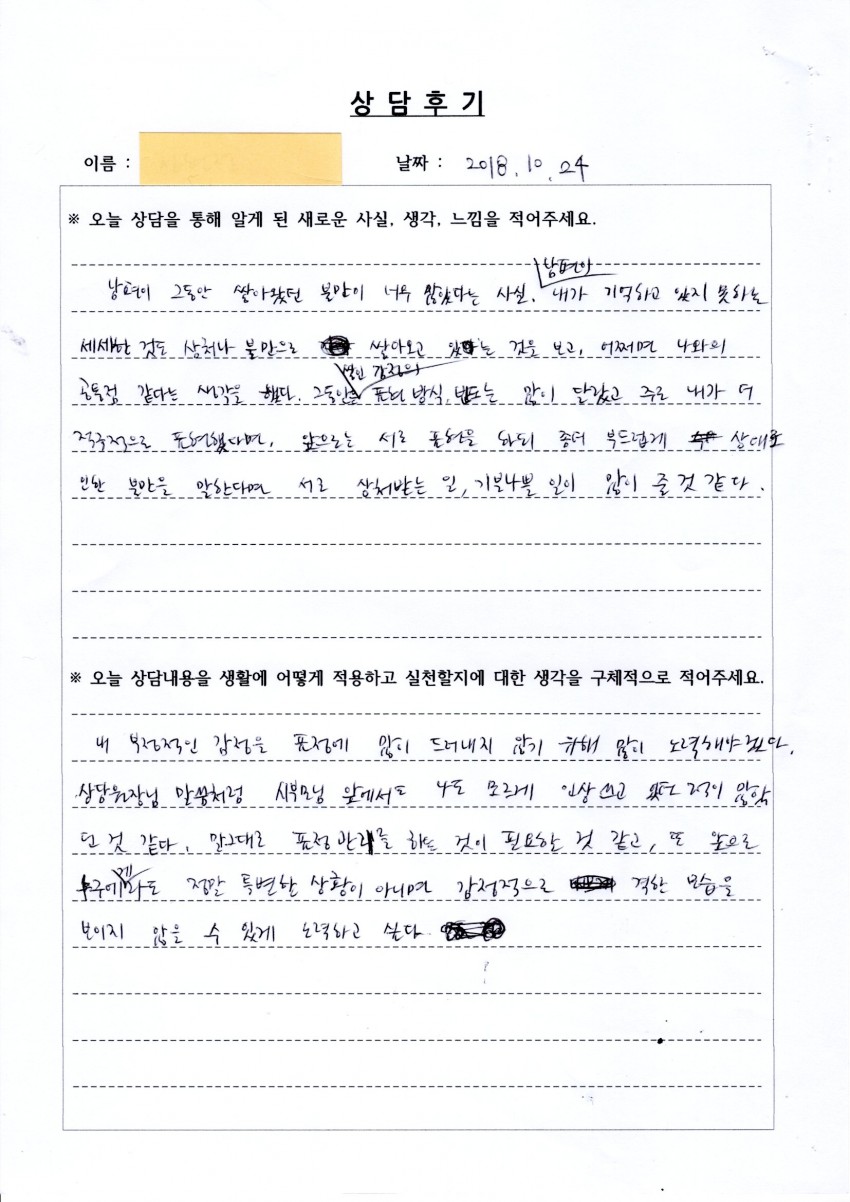 상 담 후 기
이름 : 날짜 : 2018. 10. 24
※ 오늘 상담을 통해 알게 된 새로운 사실, 생각, 느낌을 적어주세요.
남편이
남편이 그동안 쌓아왔던 불만이 너무 많았다는 사실. 내가 기억하고 있지 못하는
세세한 것도 상처나 불만으로 쌓아오고 있는 것을 보고, 어쩌면 나와의
쌓인 감정의
공통점 같다는 생각을 했다. 그동안 표현 방식, 빈도는 많이 달랐고 주로 내가 더
적극적으로 표현했다면, 앞으로는 서로 표현을 하되 좀더 부드럽게 상대로
인한 불만을 말한다면 서로 상처받는 일, 기분나쁠 일이 많이 줄 것 같다.
※ 오늘 상담내용을 생활에 어떻게 적용하고 실천할지에 대한 생각을 구체적으로 적어주세요.
내 부정적인 감정을 표정에 많이 드러내지 않기 위해 많이 노력해야겠다.
상담원장님 말씀처럼 시부모님 앞에서도 나도 모르게 인상쓰고 있던 적이 많았
던 것 같다. 말그대로 표정관리를 하는 것이 필요한 것 같고, 또 앞으로
정말 특별한 상황이 아니면 감정적으로 격한 모습을
보이지 않을 수 있게 노력하고 싶다.